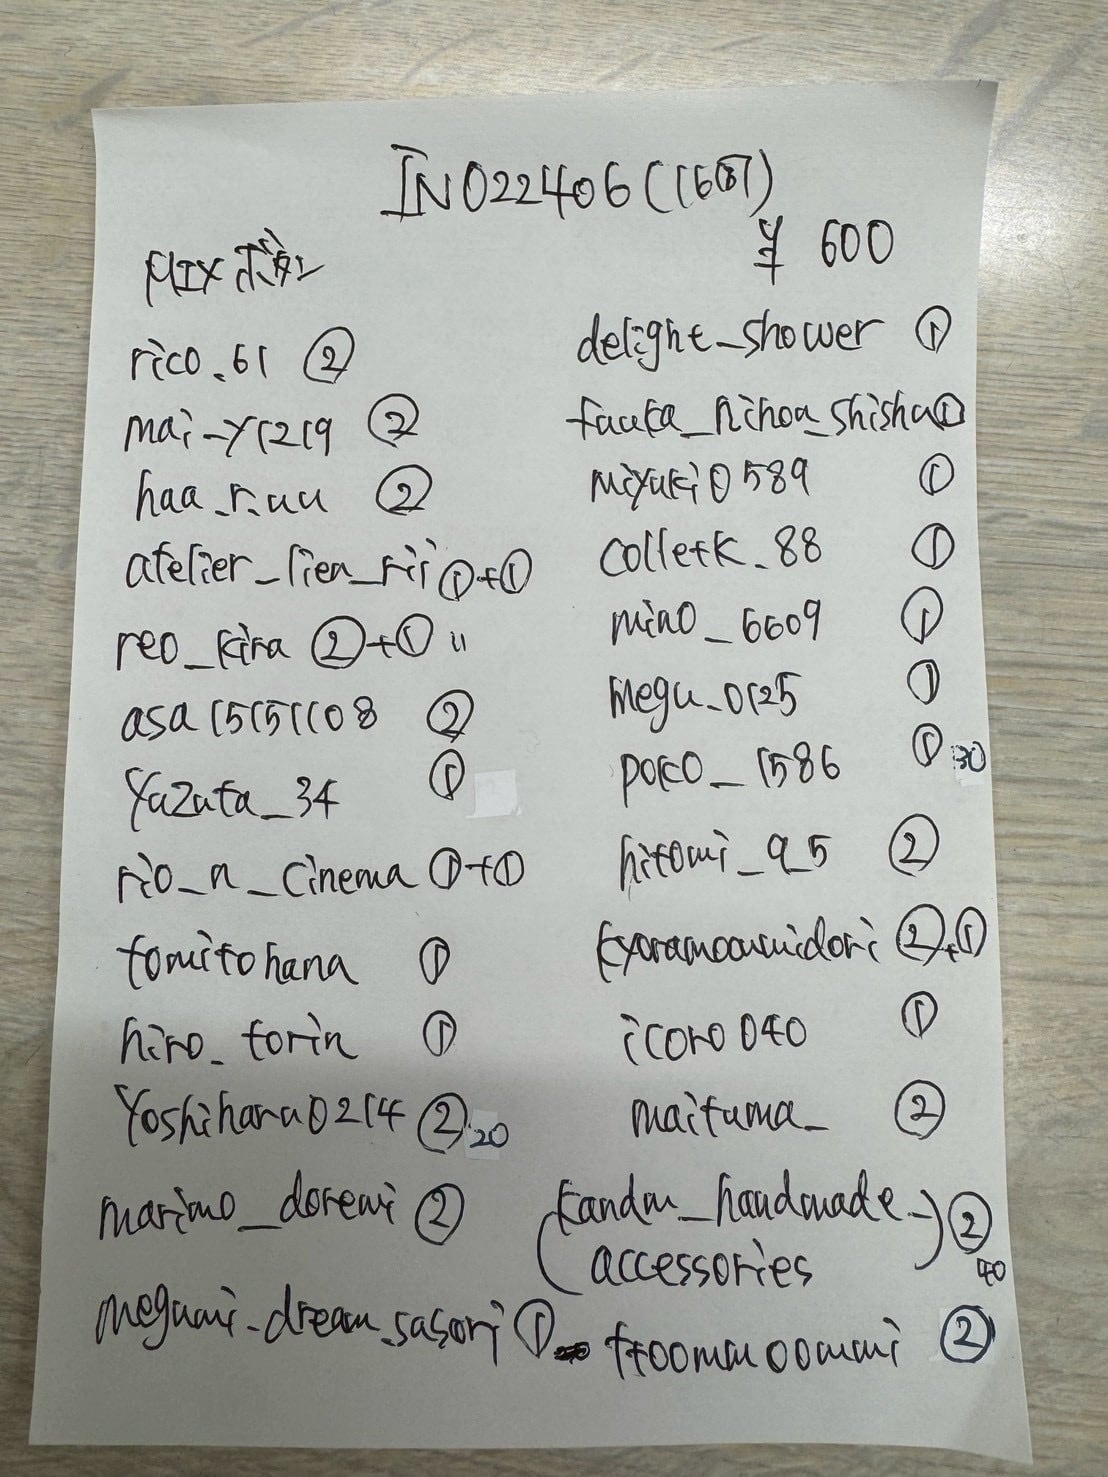 IN022406(168)
¥ 600
MIX
rico_61 ②
mai_y1219 ②
haa_r.uu ②
atelier_lien_rii ①+①
reo_kira ②+① 〃
asa15151108 ②
yazuta_34 ①
rio_n_cinema ①+①
tomitohana ①
hiro_torin ①
Yoshiharu0214 ② 20
marimo_doremi ②
megumi_dream_sasori ①
delight_shower ①
fuuka_nihoa_shisha ①
miyuki0589 ①
colletk_88 ①
mino_6609 ①
megu_0125 ①
poko_1586 ① 30
hitomi_9_5 ②
kyoramoumidori ②+①
icoro040 ①
maituma_ ②
(kandm_handmade_
accessories) ② 40
ttoommoommi ②